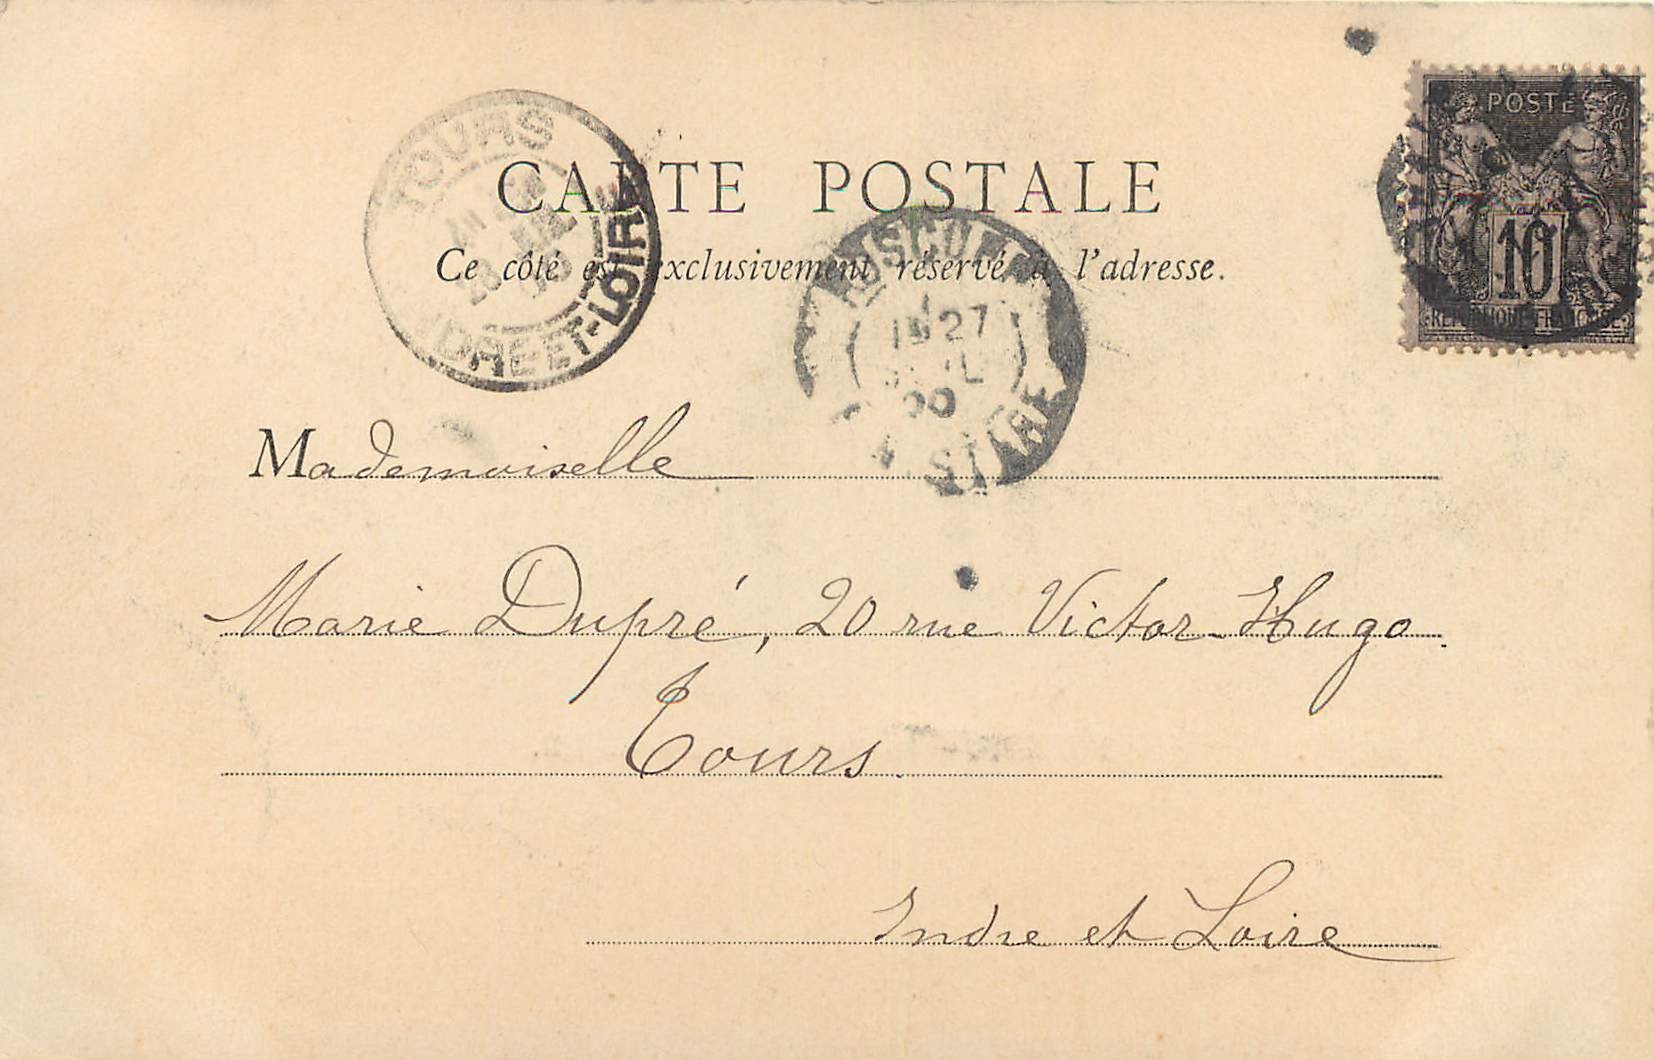 POSTE
10
RÉPUBLIQUE FRANÇAISE
TOURS
INDRE-ET-LOIRE
CARTE POSTALE
Ce côté est exclusivement réservé à l'adresse.
27
00
Mademoiselle
Marie Dupré, 20 rue Victor-Hugo.
Tours.
Indre et Loire